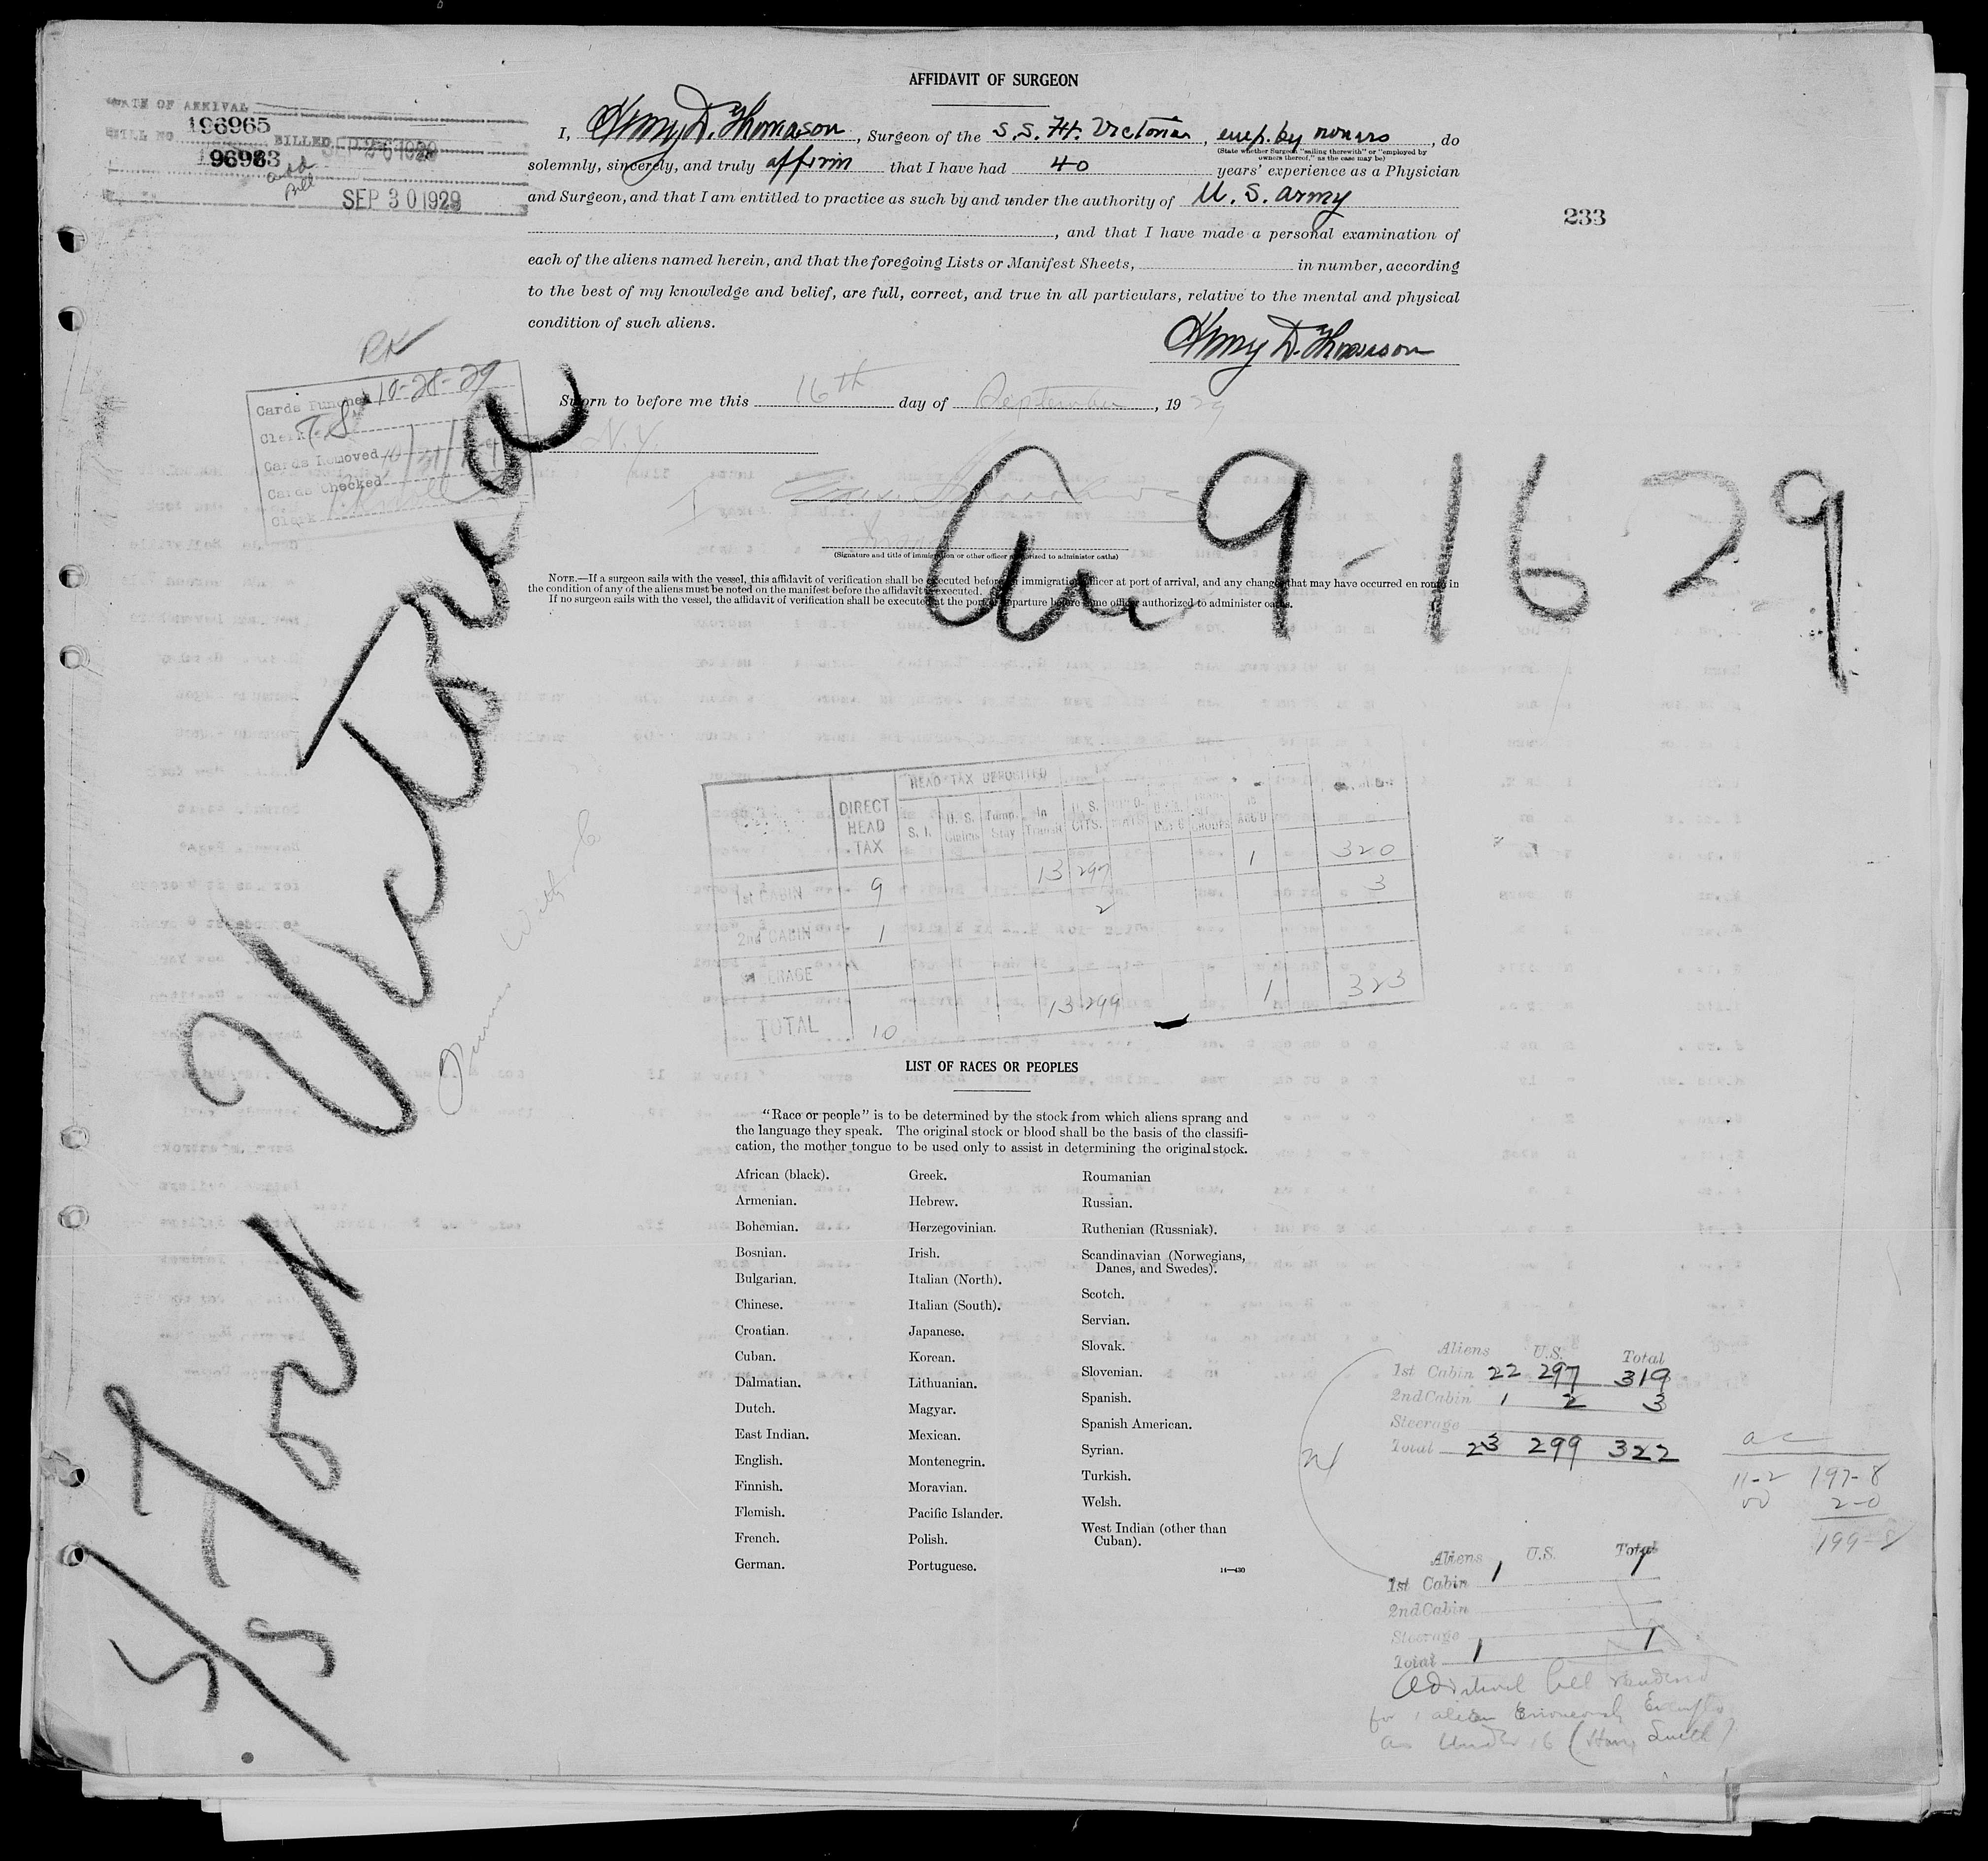 AFFIDAVIT OF SURGEON
DATE OF ARRIVAL
BILL NO. 196965 BILLED SEP 26 1929
196983 add Bill
SEP 30 1929
I, Henry D. Thomason, Surgeon of the S.S. Ft. Victoria, emp. by owners, do
(State whether Surgeon "sailing therewith" or "employed by
owners thereof," as the case may be)
solemnly, sincerely, and truly affirm that I have had 40 years' experience as a Physician
and Surgeon, and that I am entitled to practice as such by and under the authority of U. S. Army
233
, and that I have made a personal examination of
each of the aliens named herein, and that the foregoing Lists or Manifest Sheets, in number, according
to the best of my knowledge and belief, are full, correct, and true in all particulars, relative to the mental and physical
condition of such aliens.
Henry D. Thomason
Sworn to before me this 16th day of September, 1929
N.Y.
Cards Punched 10-28-29
Clerk T.S.
Cards Removed
Cards Checked
Clerk
(Signature and title of immigration or other officer authorized to administer oaths)
NOTE.—If a surgeon sails with the vessel, this affidavit of verification shall be executed before an immigration officer at port of arrival, and any changes that may have occurred en route in
the condition of any of the aliens must be noted on the manifest before the affidavit is executed.
If no surgeon sails with the vessel, the affidavit of verification shall be executed at the port of departure before some officer authorized to administer oaths.
9-16 29
S/S Fort Victoria
HEAD TAX DEPOSITED
DIRECT HEAD TAX S. I. U. S. Claims Temp. Stay In Transit U. S. CITS.
1st CABIN 9 13 297 1 320
2nd CABIN 1 2 3
STEERAGE
TOTAL 10 13 299 1 323
LIST OF RACES OR PEOPLES
"Race or people" is to be determined by the stock from which aliens sprang and
the language they speak. The original stock or blood shall be the basis of the classifi-
cation, the mother tongue to be used only to assist in determining the original stock.
African (black).
Armenian.
Bohemian.
Bosnian.
Bulgarian.
Chinese.
Croatian.
Cuban.
Dalmatian.
Dutch.
East Indian.
English.
Finnish.
Flemish.
French.
German.
Greek.
Hebrew.
Herzegovinian.
Irish.
Italian (North).
Italian (South).
Japanese.
Korean.
Lithuanian.
Magyar.
Mexican.
Montenegrin.
Moravian.
Pacific Islander.
Polish.
Portuguese.
Roumanian
Russian.
Ruthenian (Russniak).
Scandinavian (Norwegians,
Danes, and Swedes).
Scotch.
Servian.
Slovak.
Slovenian.
Spanish.
Spanish American.
Syrian.
Turkish.
Welsh.
West Indian (other than
Cuban).
14—430
Aliens U.S. Total
1st Cabin 22 297 319
2nd Cabin 1 2 3
Steerage
Total 23 299 322
11-2 197-8
2-0
199-8
Aliens U.S. Total
1st Cabin 1 1
2nd Cabin
Steerage
Total 1 1
Additional bill rendered
for 1 alien Erroneously
as Under 16